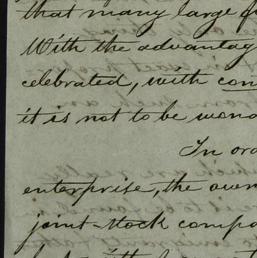 that many large
With the advantag
celebrated, with con
it is not to be won
In or
enterprise, the own
joint-stock compa